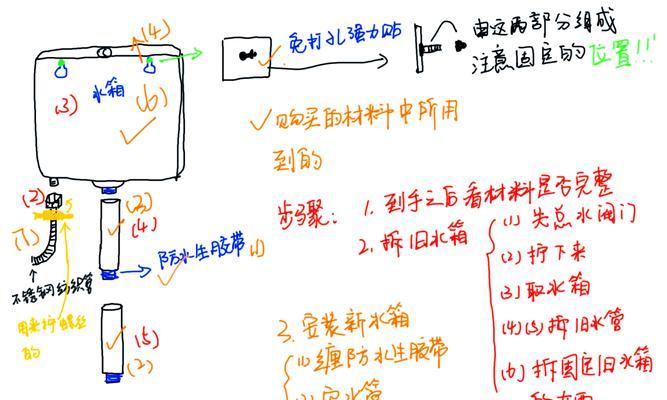 (4)
免打孔强力贴
由这两部分组成
注意固定的位置!!!
水箱
(3)
(6)
✓购买的材料中所用
到的
(2)
(3)
(4)
(1)
防水生胶带
(1)
不锈钢编织管
用来拧螺丝
的
(5)
(2)
步骤:
1. 到手之后看材料是否完整
2. 拆旧水箱
(1) 先总水阀门
(2) 拧下来
(3) 取水箱
(4)(5) 拆旧水管
(6) 拆固定旧水箱
3. 安装新水箱
(1) 缠防水生胶带